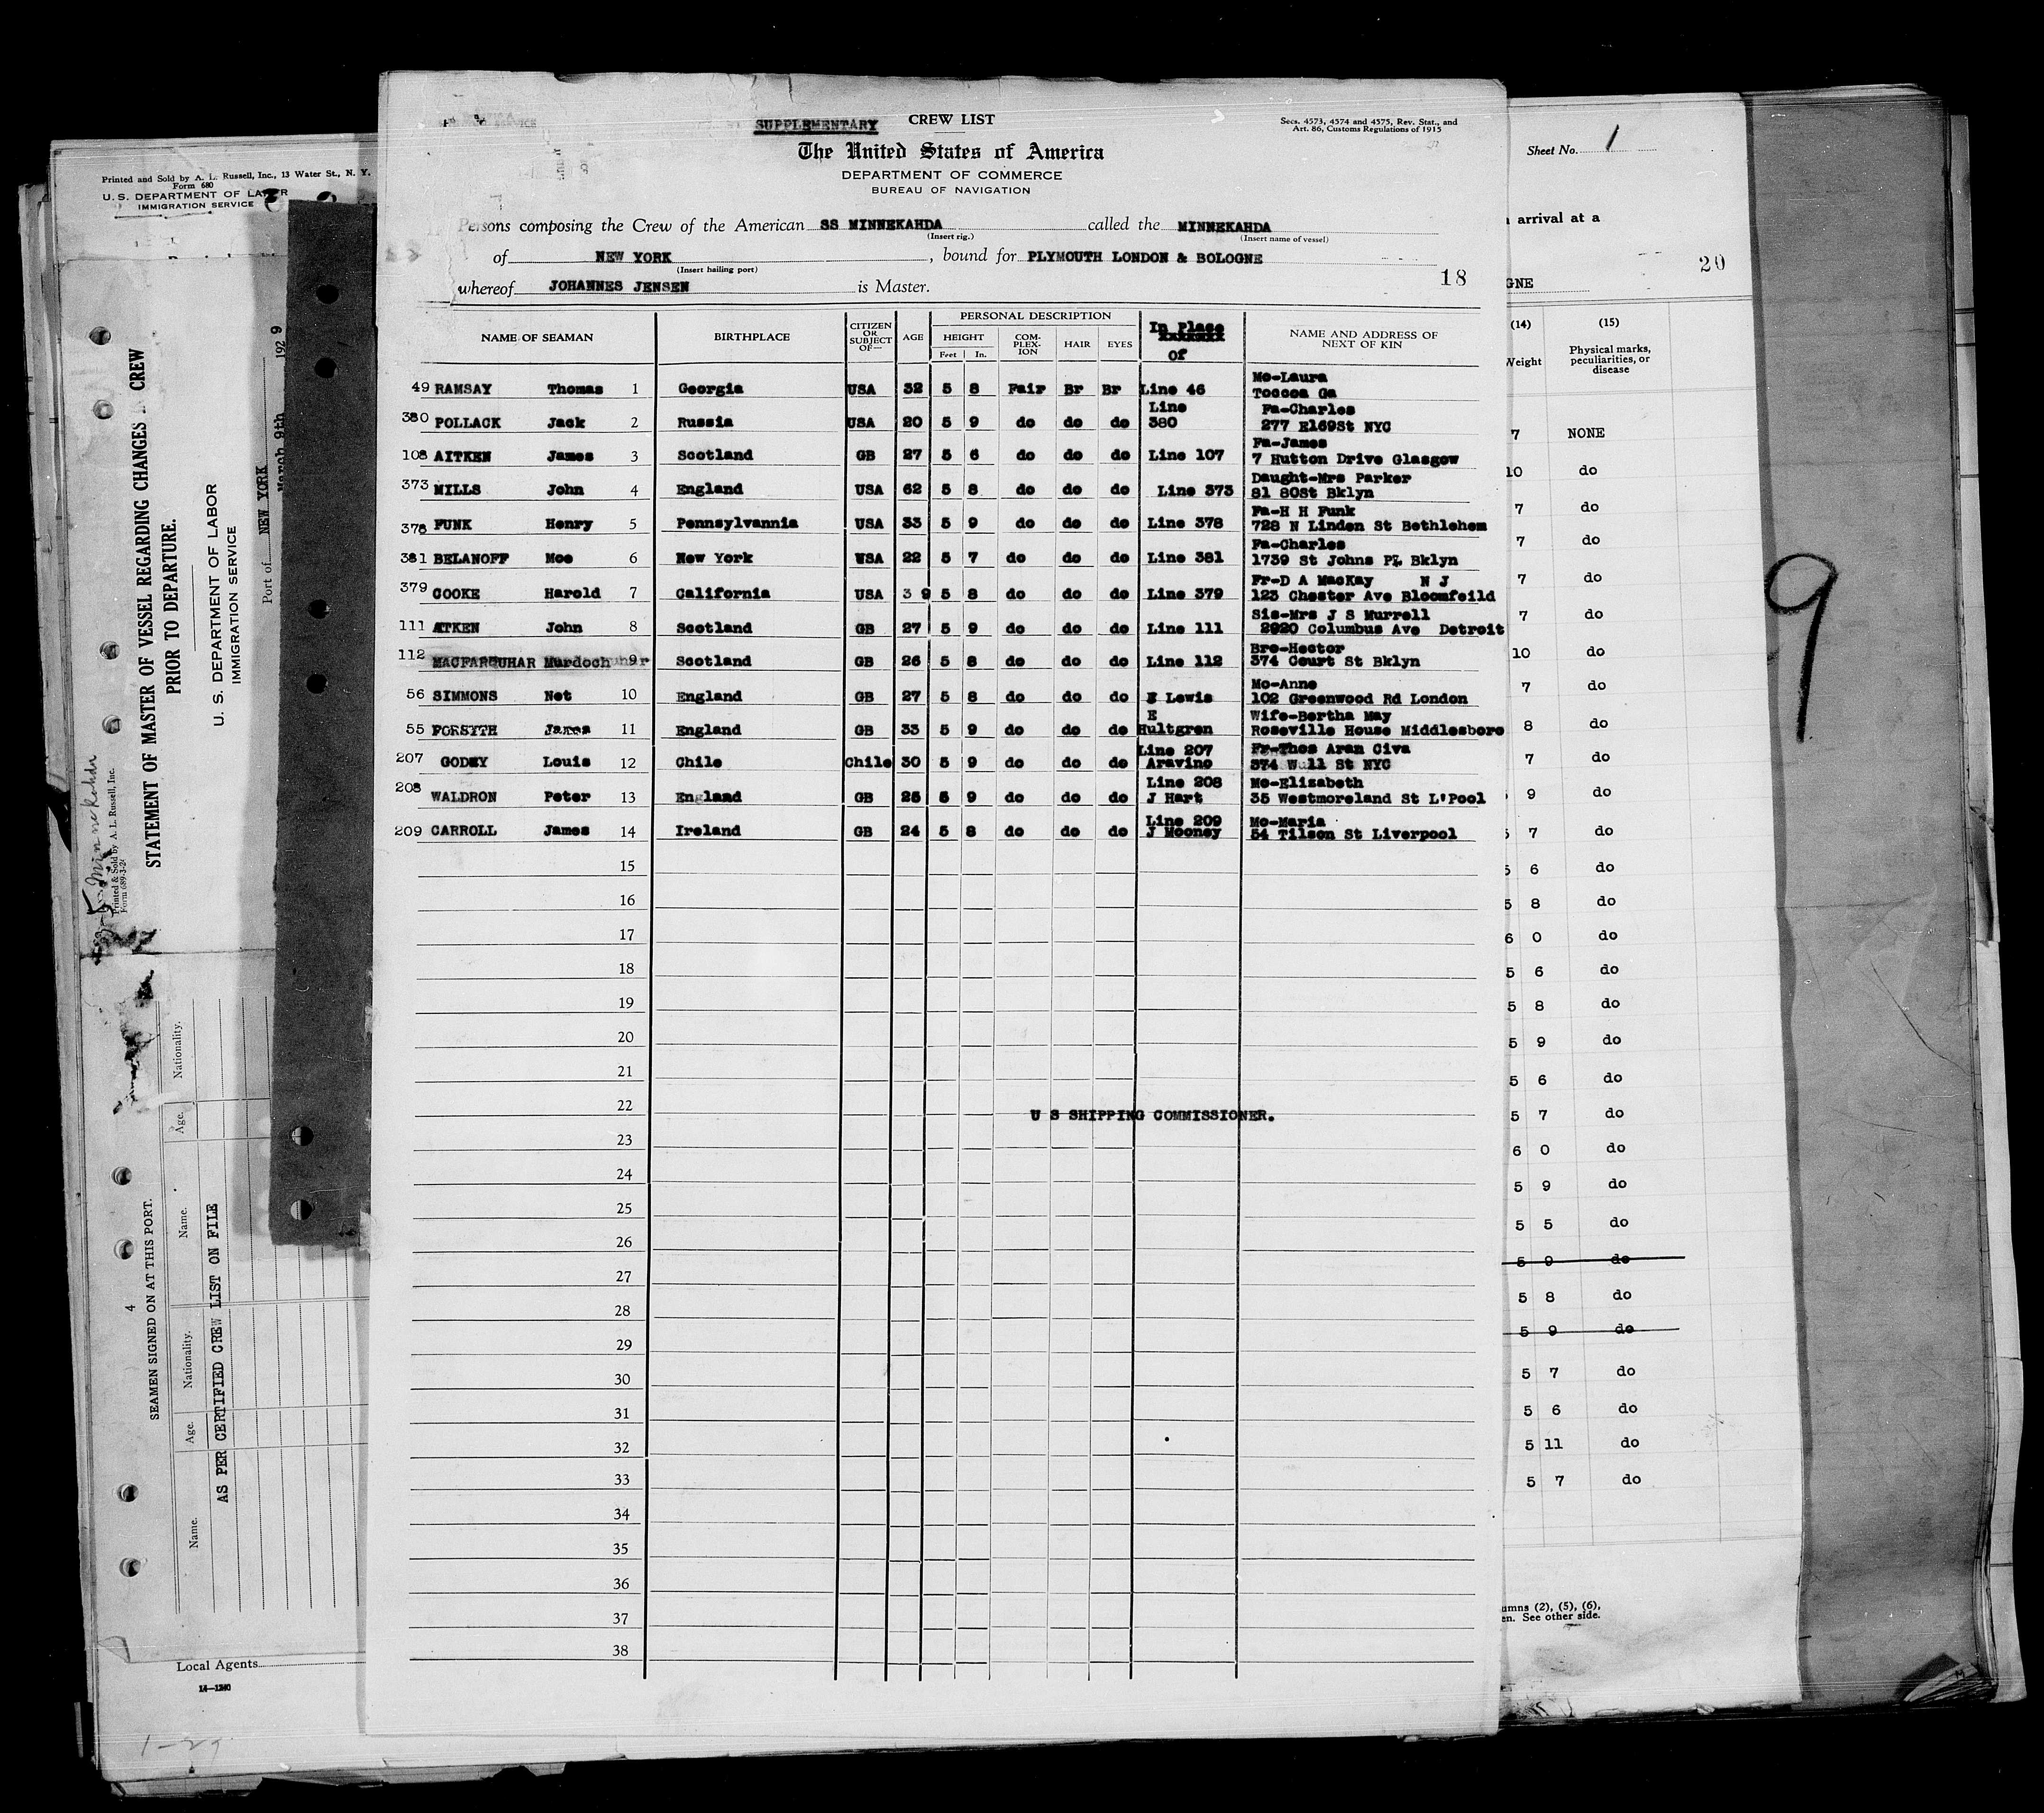 SUPPLEMENTARY CREW LIST
Secs. 4573, 4574 and 4575, Rev. Stat., and
Art. 86, Customs Regulations of 1915
The United States of America
DEPARTMENT OF COMMERCE
BUREAU OF NAVIGATION
Persons composing the Crew of the American SS MINNEKAHDA called the MINNEKAHDA
(Insert rig.) (Insert name of vessel)
of NEW YORK, bound for PLYMOUTH LONDON & BOLOGNE
(Insert hailing port)
whereof JOHANNES JENSEN is Master.
18
NAME OF SEAMAN BIRTHPLACE CITIZEN OR SUBJECT OF— AGE PERSONAL DESCRIPTION HEIGHT Feet In. COM-PLEX-ION HAIR EYES In Place of NAME AND ADDRESS OF NEXT OF KIN
49 RAMSAY Thomas 1 Georgia USA 32 5 8 Fair Br Br Line 46 Mo-Laura Toccoa Ga
380 POLLACK Jack 2 Russia USA 20 5 9 do do do Line 380 Fa-Charles 277 E169St NYC
108 AITKEN James 3 Scotland GB 27 5 6 do do do Line 107 Fa-James 7 Hutton Drive Glasgow
373 MILLS John 4 England USA 62 5 8 do do do Line 373 Daught-Mrs Parker 81 80St Bklyn
378 FUNK Henry 5 Pennsylvannia USA 33 5 9 do do do Line 378 Fa-H H Funk 728 N Linden St Bethlehem
381 BELANOFF Moe 6 New York USA 22 5 7 do do do Line 381 Fa-Charles 1739 St Johns PL Bklyn
379 COOKE Harold 7 California USA 39 5 8 do do do Line 379 Fr-D A MacKay N J 123 Chester Ave Bloomfeild
111 ATKEN John 8 Scotland GB 27 5 9 do do do Line 111 Sis-Mrs J S Murrell 2920 Columbus Ave Detroit
112 MACFARQUHAR Murdoch 9 Scotland GB 26 5 8 do do do Line 112 Bro-Hector 374 Court St Bklyn
56 SIMMONS Net 10 England GB 27 5 8 do do do Lewis Mo-Anne 102 Greenwood Rd London
55 FORSYTH James 11 England GB 33 5 9 do do do E Hultgren Wife-Bertha May Roseville House Middlesboro
207 GODOY Louis 12 Chile Chile 30 5 9 do do do Line 207 Aravino Fr-Thos Aran Civa 374 Wall St NYC
208 WALDRON Peter 13 England GB 25 5 9 do do do Line 208 J Hart Mo-Elizabeth 35 Westmoreland St L'Pool
209 CARROLL James 14 Ireland GB 24 5 8 do do do Line 209 J Mooney Mo-Maria 54 Tilson St Liverpool
15
16
17
18
19
20
21
22
U S SHIPPING COMMISSIONER.
23
24
25
26
27
28
29
30
31
32
33
34
35
36
37
38
Printed and Sold by A. L. Russell, Inc., 13 Water St., N. Y.
Form 680
U. S. DEPARTMENT OF LABOR
IMMIGRATION SERVICE
STATEMENT OF MASTER OF VESSEL REGARDING CHANGES IN CREW
PRIOR TO DEPARTURE.
U. S. DEPARTMENT OF LABOR
IMMIGRATION SERVICE
Port of NEW YORK
March 9th 1929
Minnekahda
Printed & Sold by A. L. Russell, Inc.
4
SEAMEN SIGNED ON AT THIS PORT.
Name. Age. Nationality. Name. Age. Nationality.
AS PER CERTIFIED CREW LIST ON FILE
Local Agents
14—1240
1-29
Sheet No. 1
arrival at a
20
GNE
(14) (15)
Weight Physical marks, peculiarities, or disease
7 NONE
10 do
7 do
7 do
7 do
7 do
10 do
7 do
8 do
7 do
9 do
5 7 do
5 6 do
5 8 do
6 0 do
5 6 do
5 8 do
5 9 do
5 6 do
5 7 do
6 0 do
5 9 do
5 5 do
5 9 do
5 8 do
5 9 do
5 7 do
5 6 do
5 11 do
5 7 do
umns (2), (5), (6),
en. See other side.
9